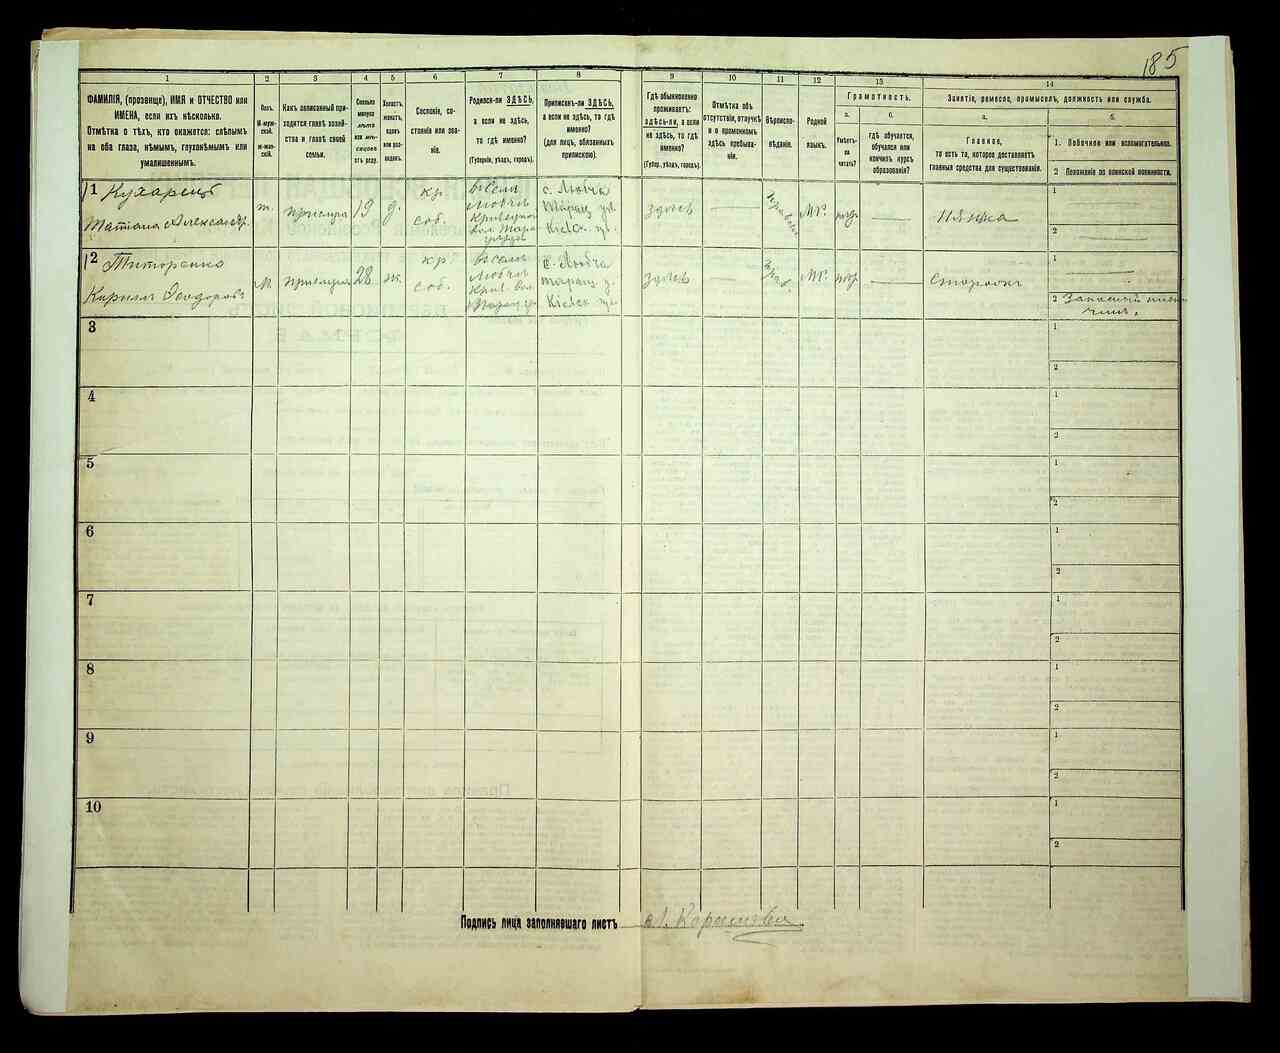 185
1 2 3 4 5 6 7 8 9 10 11 12 13 14
ФАМИЛІЯ, (прозвище), ИМЯ и ОТЧЕСТВО или
ИМЕНА, если ихъ нѣсколько.
Отмѣтка о тѣхъ, кто окажется: слѣпымъ
на оба глаза, нѣмымъ, глухонѣмымъ или
умалишеннымъ.
Полъ.
М-мужской.
Ж-женскій.
Какъ записанный при-
ходится главѣ хозяй-
ства и главѣ своей
семьи.
Сколько
минуло
лѣтъ
или мѣ-
сяцевъ
отъ роду.
Холостъ,
женатъ,
вдовъ
или раз-
веденъ.
Сословіе, со-
стояніе или зва-
ніе.
Родился-ли ЗДѢСЬ,
а если не здѣсь,
то гдѣ именно?
(Губернія, уѣздъ, городъ).
Приписанъ-ли ЗДѢСЬ,
а если не здѣсь, то гдѣ
именно?
(для лицъ, обязанныхъ
припискою).
Гдѣ обыкновенно
проживаетъ:
здѣсь-ли, а если
не здѣсь, то гдѣ
именно?
(Губер., уѣздъ, городъ).
Отмѣтка объ
отсутствіи, отлучкѣ
и о временномъ
здѣсь пребыва-
ніи.
Вѣроиспо-
вѣданіе.
Родной
языкъ.
Грамотность.
а.
Умѣетъ-
ли
читать?
б.
гдѣ обучается,
обучался или
кончилъ курсъ
образованія?
Занятіе, ремесло, промыселъ, должность или служба.
а.
Главное,
то есть то, которое доставляетъ
главныя средства для существованія.
б.
1. Побочное или вспомогательное.
2 Положеніе по воинской повинности.
1 Кухарецъ
Татіана Александр.
прислуга 19 д. кр. соб.
с. Любча
Таращ. у.
Кіевск. г.
здѣсь — — нянька
1
2
2 Титоренко
Кириллъ Ѳеодоровъ
м прислуга 28 ж. кр. соб.
с. Любча
Таращ. у.
Кіевск. г.
здѣсь — прав. — сторожъ
1
2
3
1
2
4
1
2
5
1
2
6
1
2
7
1
2
8
1
2
9
1
2
10
1
2
Подпись лица заполнявшаго листъ